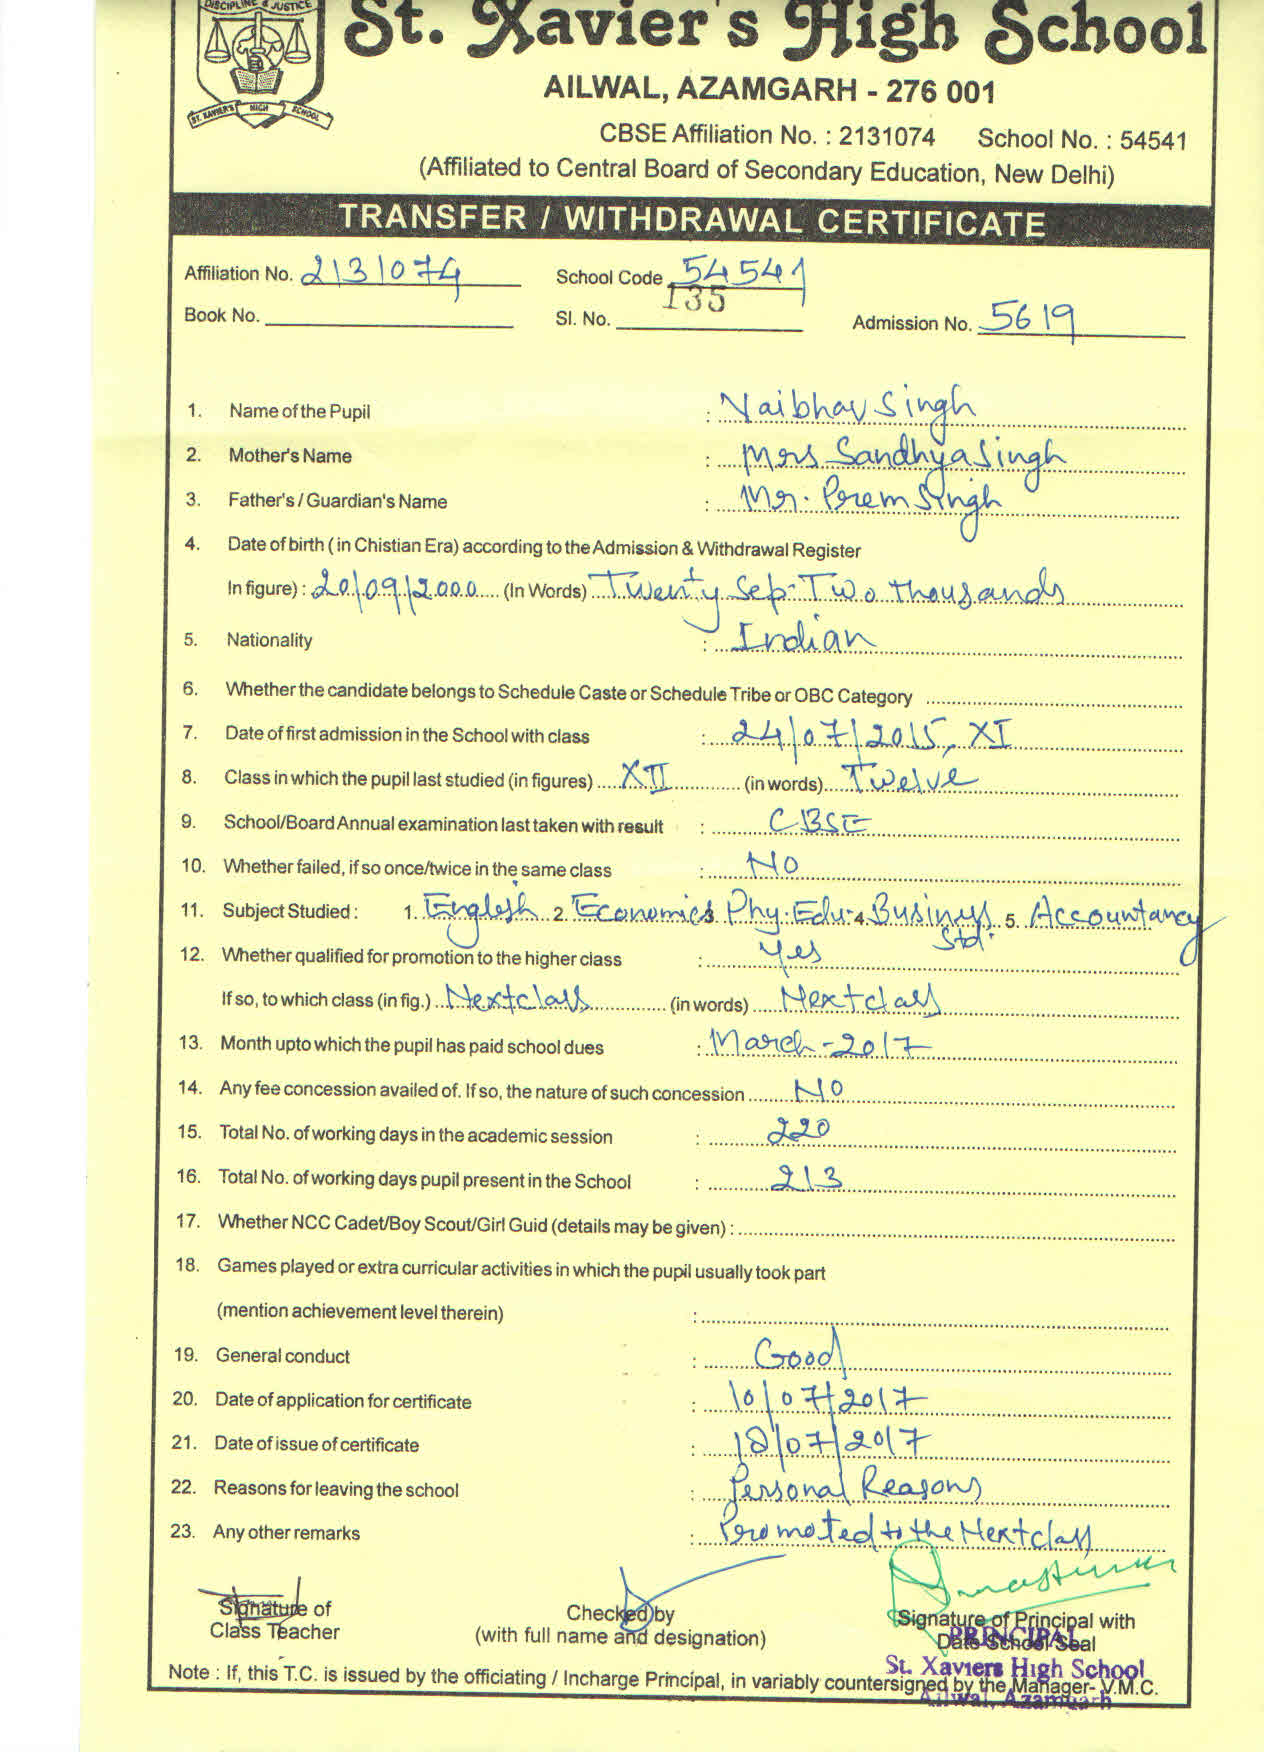 DISCIPLINE & JUSTICE
St. Xavier's High School
ST. XAVIER'S HIGH SCHOOL
AILWAL, AZAMGARH - 276 001
CBSE Affiliation No. : 2131074 School No. : 54541
(Affiliated to Central Board of Secondary Education, New Delhi)
TRANSFER / WITHDRAWAL CERTIFICATE
Affiliation No. 2131074 School Code 54541
Book No. Sl. No. 135 Admission No. 5619
1. Name of the Pupil : Vaibhav Singh
2. Mother's Name : Mrs Sandhya Singh
3. Father's / Guardian's Name : Mr. Prem Singh
4. Date of birth ( in Chistian Era) according to the Admission & Withdrawal Register
In figure) : 20/09/2000 (In Words) Twenty Sep. Two thousands
5. Nationality : Indian
6. Whether the candidate belongs to Schedule Caste or Schedule Tribe or OBC Category
7. Date of first admission in the School with class : 24/07/2015, XI
8. Class in which the pupil last studied (in figures) XII (in words) Twelve
9. School/Board Annual examination last taken with result : CBSE
10. Whether failed, if so once/twice in the same class : NO
11. Subject Studied : 1. English 2. Economics 3. Phy. Edu. 4. Business Std. 5. Accountancy
12. Whether qualified for promotion to the higher class : Yes
If so, to which class (in fig.) Next class (in words) Next class
13. Month upto which the pupil has paid school dues : March-2017
14. Any fee concession availed of. If so, the nature of such concession NO
15. Total No. of working days in the academic session : 220
16. Total No. of working days pupil present in the School : 213
17. Whether NCC Cadet/Boy Scout/Girl Guid (details may be given) :
18. Games played or extra curricular activities in which the pupil usually took part
(mention achievement level therein) :
19. General conduct : Good
20. Date of application for certificate : 10/07/2017
21. Date of issue of certificate : 18/07/2017
22. Reasons for leaving the school : Personal Reasons
23. Any other remarks : Promoted to the Next class
Signature of Checked by Signature of Principal with
Class Teacher (with full name and designation) Date School Seal
PRINCIPAL
St. Xaviers High School
Note : If, this T.C. is issued by the officiating / Incharge Principal, in variably countersigned by the Manager- V.M.C.
Ailwal, Azamgarh